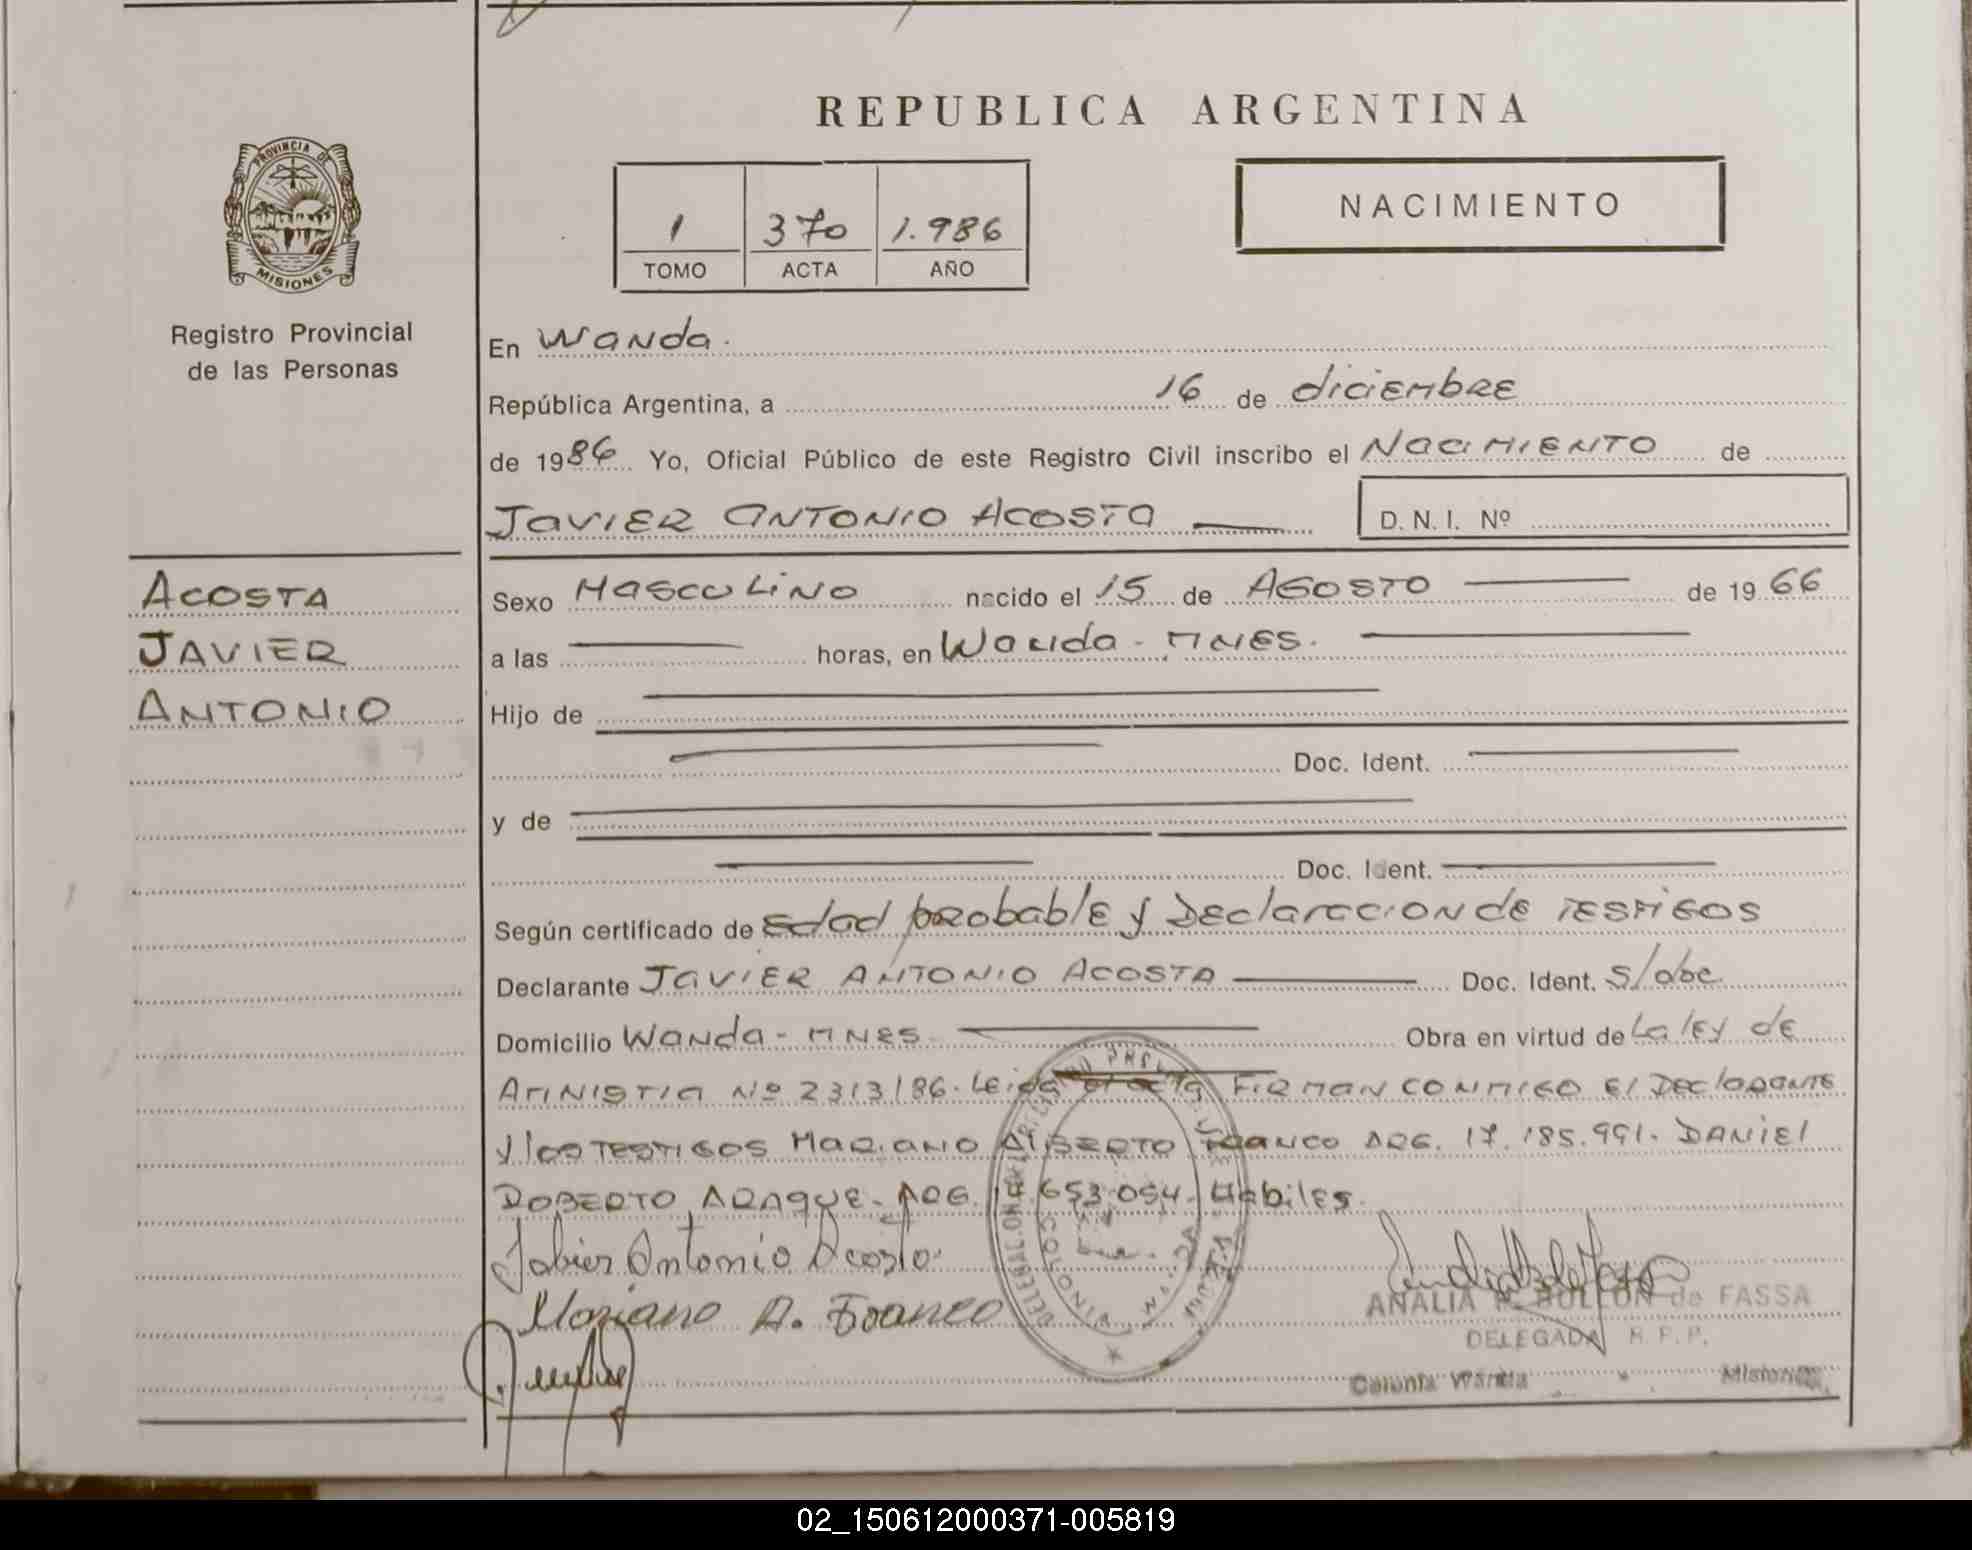 REPUBLICA ARGENTINA
PROVINCIA DE
MISIONES
Registro Provincial
de las Personas
1 370 1.986
TOMO ACTA AÑO
NACIMIENTO
En Wanda.
República Argentina, a 16 de diciembre
de 1986 Yo, Oficial Público de este Registro Civil inscribo el Nacimiento de
Javier Antonio Acosta
D. N. I. Nº
Acosta
Javier
Antonio
Sexo Masculino nacido el 15 de Agosto de 1966
a las horas, en Wanda - Mnes.
Hijo de
Doc. Ident.
y de
Doc. Ident.
Según certificado de Edad probable y Declaracion de Testigos
Declarante Javier Antonio Acosta Doc. Ident. S/doc.
Domicilio Wanda - Mnes. Obra en virtud de La ley de
Aminістia Nº 2313/86. Leida el acta Firman conmigo el Declarante
y los Testigos Mariano Alberto Franco Arg. 17.185.991. Daniel
Roberto Araque - Arg. 653.054. Habiles.
Jabier Antonio Acosta
Mariano A. Franco
ANALIA BULLON de FASSA
DELEGADA R. P. P.
Colonia Wanda Misiones
02_150612000371-005819